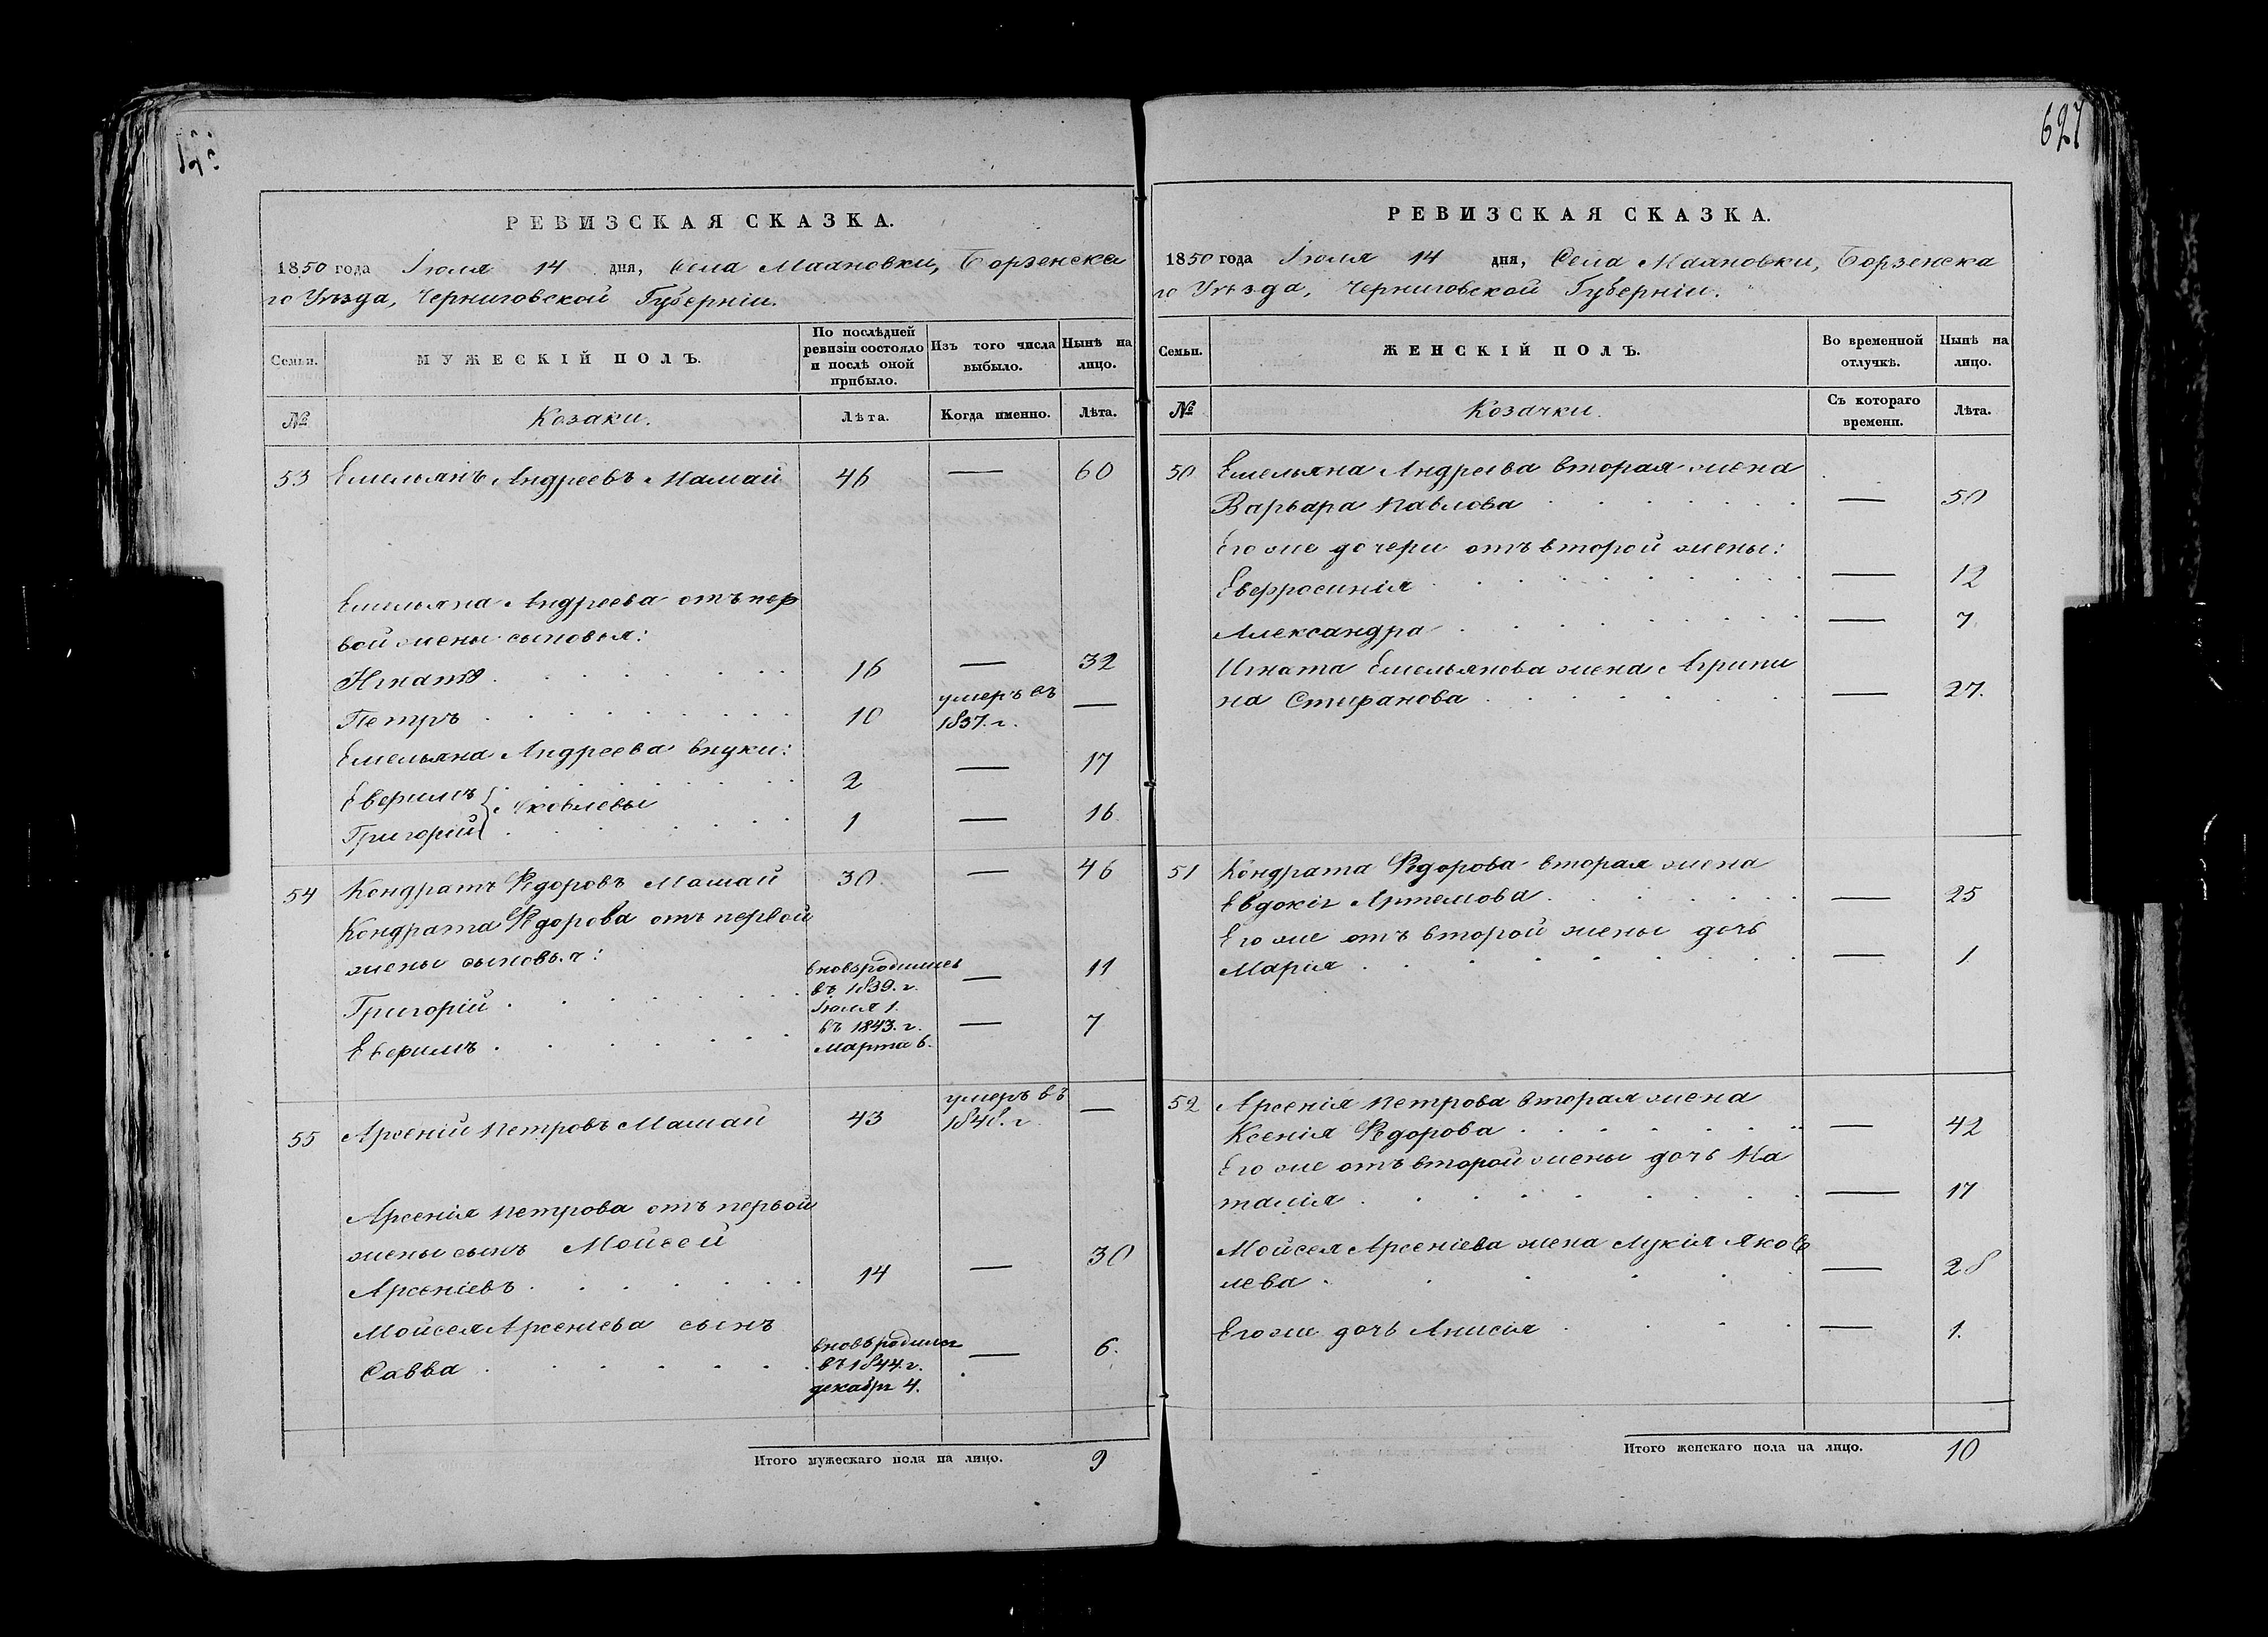 627
РЕВИЗСКАЯ СКАЗКА.
1850 года Іюля 14 дня, Села Малновки, Борзенска
го Уѣзда, Черниговской Губерніи.
Семьи.
МУЖЕСКІЙ ПОЛЪ.
По послѣдней
ревизіи состояло
и послѣ оной
прибыло.
Изъ того числа
выбыло.
Нынѣ на
лицо.
№
Козаки.
Лѣта.
Когда именно.
Лѣта.
53 Емельянъ Андреевъ Мамай 46 — 60
Емельяна Андреева отъ пер
вой жены сыновья:
Игнатъ 16 — 32
Петръ 10 умеръ въ 1837. г. —
Емельяна Андреева внуки:
Евфимъ 2 — 17
Яковлевы
Григорій 1 — 16
54 Кондратъ Ѳедоровъ Мамай 30 — 46
Кондрата Ѳедорова отъ первой
жены сыновья:
Григорій вновь родились въ 1839. г. Іюля 1. — 11
Евфимъ въ 1843. г. Марта 6. — 7
55 Арсеній Петровъ Мамай 43 умеръ въ 1848. г. —
Арсенія Петрова отъ первой
жены сынъ Мойсей
Арсеніевъ 14 — 30
Мойсея Арсеніева сынъ
Савва вновь родился въ 1844. г. декабря 4. — 6.
Итого мужескаго пола на лицо. 9
РЕВИЗСКАЯ СКАЗКА.
1850 года Іюля 14 дня, Села Малновки, Борзенска
го Уѣзда, Черниговской Губерніи.
Семьи.
ЖЕНСКІЙ ПОЛЪ.
Во временной
отлучкѣ.
Нынѣ на
лицо.
№
Козачки.
Съ котораго
времени.
Лѣта.
50 Емельяна Андреева вторая жена
Варвара Павлова — 50
Его же дочери отъ второй жены:
Евфросинія — 12
Александра — 7
Игната Емельянова жена Агрипи
на Стефанова — 27.
51 Кондрата Ѳедорова вторая жена
Евдокія Артемова — 25
Его же отъ второй жены дочь
Марія — 1
52 Арсенія Петрова вторая жена
Ксенія Ѳедорова — 42
Его же отъ второй жены дочь На
талія — 17
Мойсея Арсеніева жена Лукія Яков
лева — 28
Его же дочь Анисія — 1.
Итого женскаго пола на лицо. 10